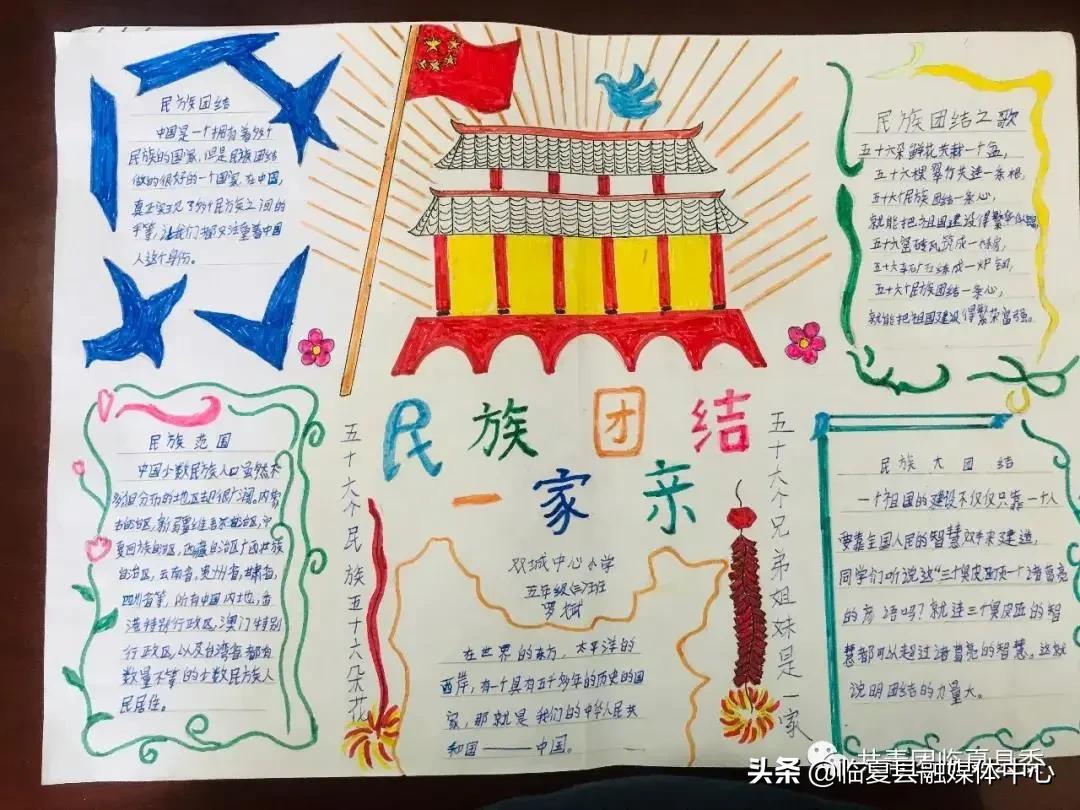 民族团结
中国是一个拥有着56个
民族的国家,但是民族团结
做的很好的一个国家,在中国,
真正实现了56个民族之间的
平等,让我们都只注重着中国
人这个身份。
民族团结之歌
五十六朵鲜花共栽一个盆,
五十六棵翠竹共连一条根,
五十六个民族团结一条心,
就能把祖国建设得繁华似锦
五十六窑砖瓦筑成一体家,
五十六车矿石炼成一炉钢,
五十六个民族团结一条心,
就能把祖国建设得繁荣富强。
民族团结
一家亲
民族范围
中国少数民族人口虽然不
多,但分布的地区却很广阔。内蒙
古自治区,新疆维吾尔自治区,宁
夏回族自治区,西藏自治区广西壮族
自治区,云南省,贵州省,甘肃省,
四川省等,所有中国内地,香
港特别行政区,澳门特别
行政区,以及台湾省都有
数量不等的少数民族人
民居住。
五十六个民族五十六朵花
双城中心小学
五年级(三)班
罗斌
在世界的东方,太平洋的
西岸,有一个具有五千多年的历史的国
家,那就是我们的中华人民共
和国——中国。
五十六个兄弟姐妹是一家
民族大团结
一个祖国的建设不仅仅只靠一个人
要靠全国人民的智慧双手来建造,
同学们听说这“三个臭皮匠顶一个诸葛亮
的彦语吗?就连三个臭皮匠的智
慧都可以超过诸葛亮的智慧。这就
说明团结的力量大。
共青团临夏县委
头条@临夏县融媒体中心